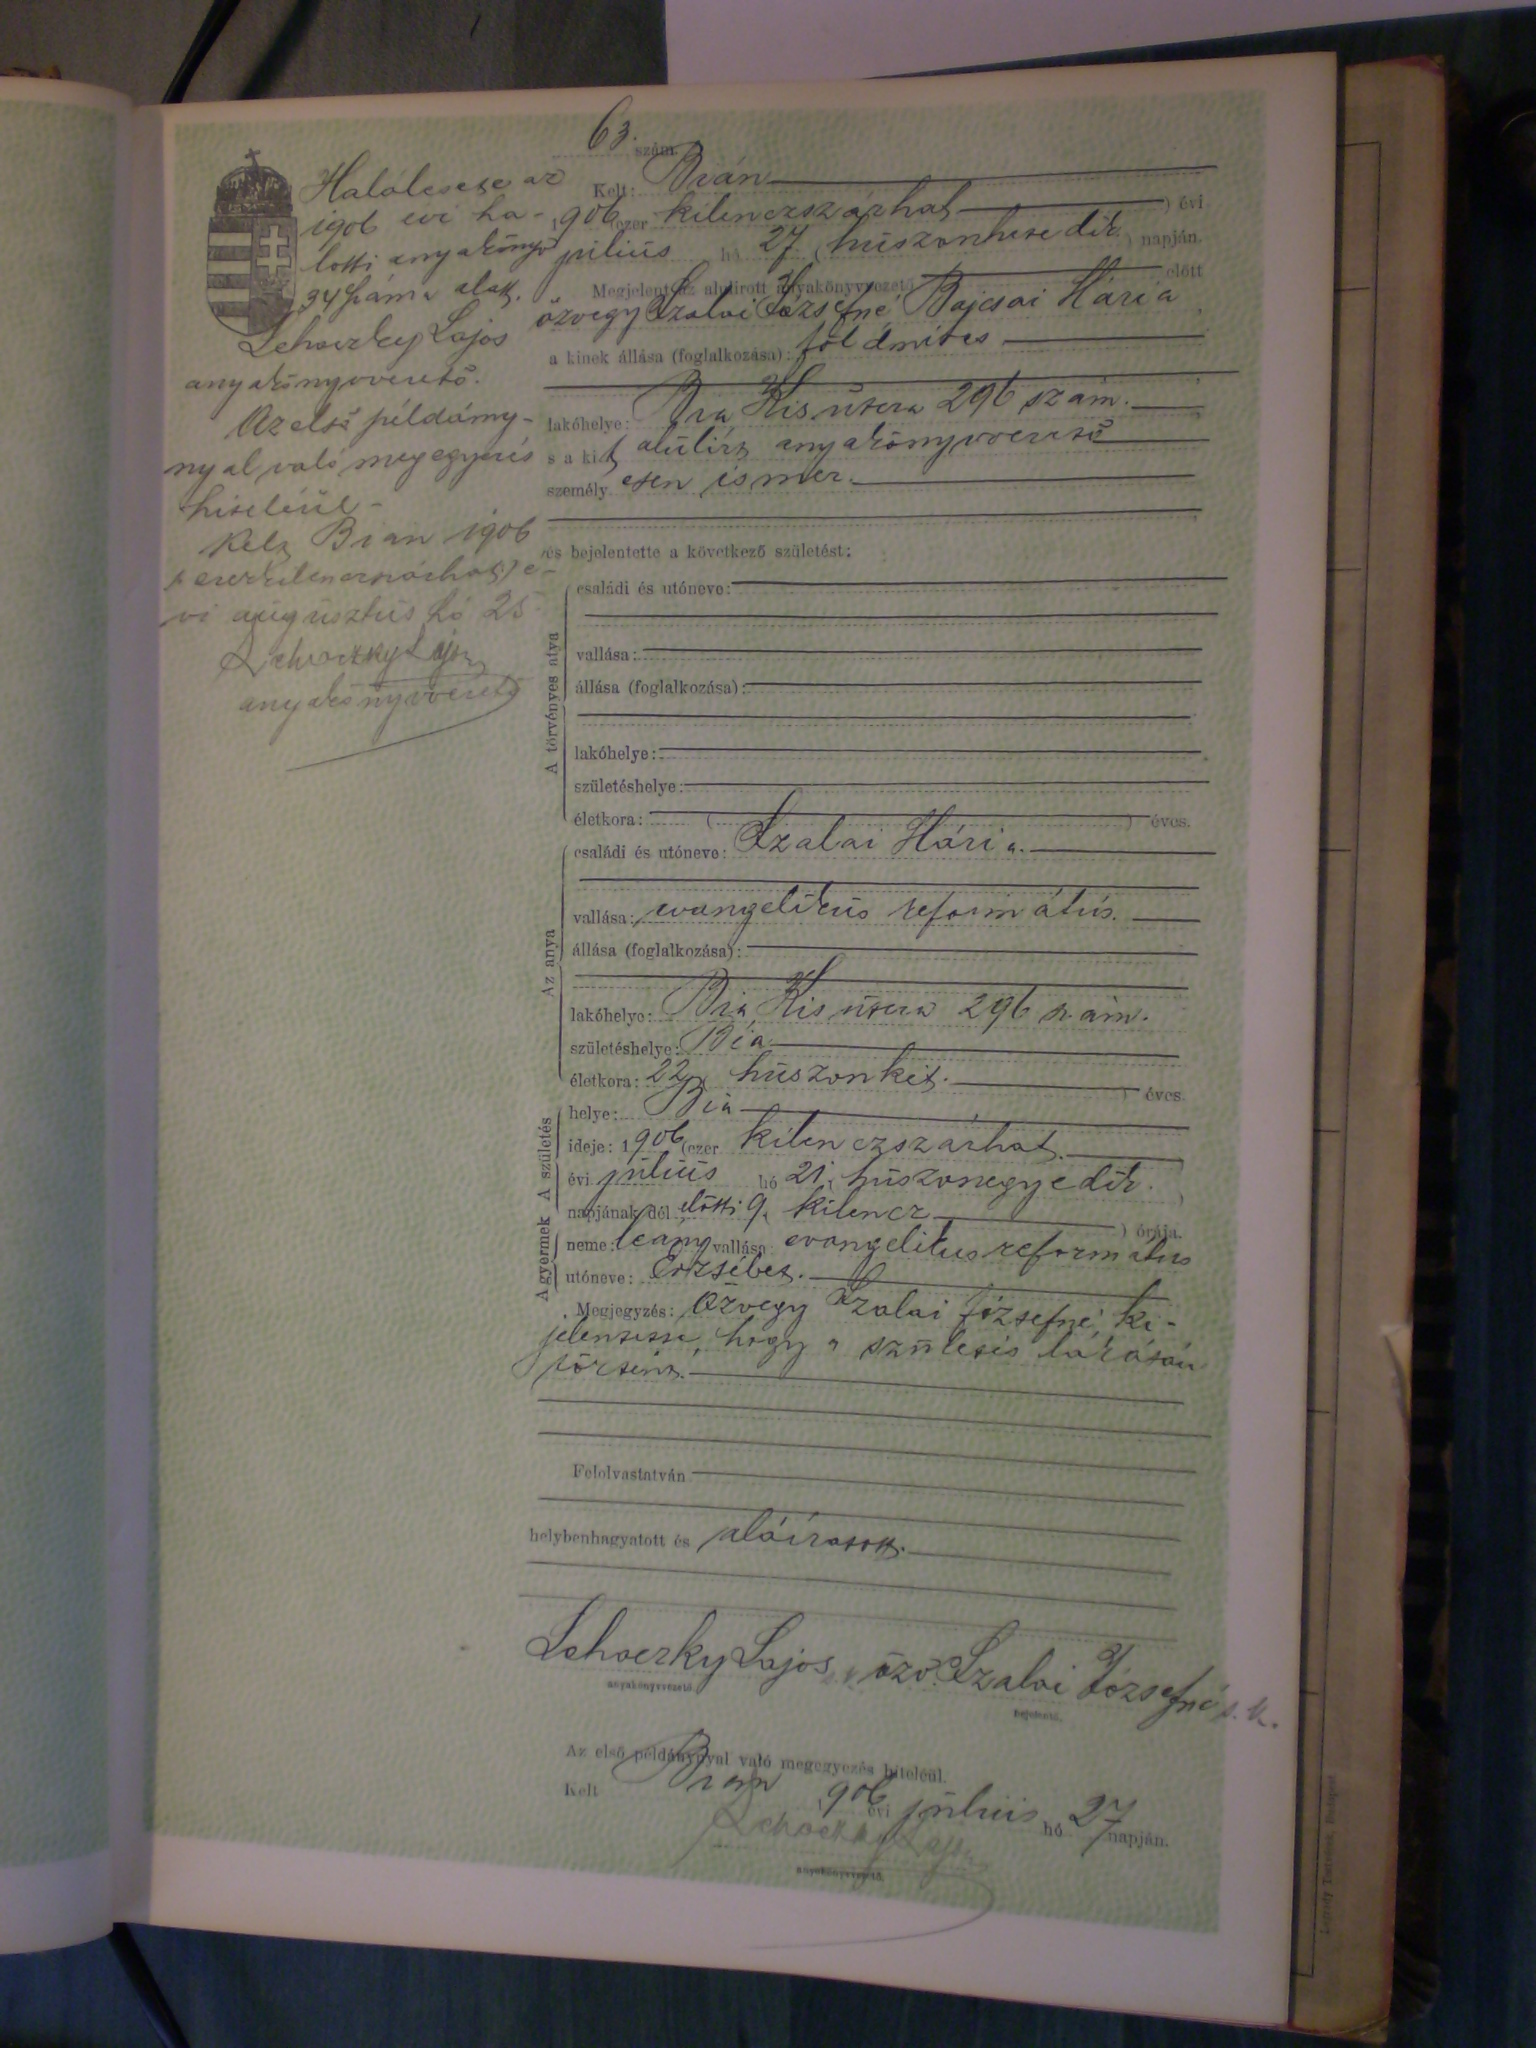 63. szám.
Kelt: Bián
1906 (ezer kilenczszázhat) évi
július hó 27 (huszonhetedik) napján.
Megjelent az alulirott anyakönyvvezető előtt
özvegy Szalai Józsefné Bajcsai Mária
a kinek állása (foglalkozása): földmives
lakóhelye: Bia Kis útcza 296 szám.
s a kit alulirt anyakönyvvezető
személyesen ismer.
és bejelentette a következő születést:
A törvényes atya
családi és utóneve:
vallása:
állása (foglalkozása):
lakóhelye:
születéshelye:
életkora: ( ) éves.
Az anya
családi és utóneve: Szalai Mária.
vallása: evangelikus református.
állása (foglalkozása):
lakóhelye: Bia, Kis útcza 296 szám.
születéshelye: Bia
életkora: 22 ( huszonkét. ) éves.
A születés
helye: Bia
ideje: 1906 (ezer kilenczszázhat.
évi július hó 21, huszonegyedik. )
napjának dél előtti 9, kilencz ) órája.
A gyermek
neme: leány vallása: evangelikus református
utóneve: Erzsébet.
Megjegyzés: Özvegy Szalai Józsefné, ki-
jelentette, hogy a születés lakásán
történt.
Felolvastatván
helybenhagyatott és aláíratott.
Lehoczky Lajos s. k. özv. Szalai Józsefné s. k.
anyakönyvvezető. bejelentő.
Az első példánynyal való megegyezés hiteléül.
Kelt Bián 1906 évi július hó 27 napján.
Lehoczky Lajos
anyakönyvvezető.
Halálesete az
1906 évi ha-
lotti anyakönyv
34 szám alatt.
Lehoczky Lajos
anyakönyvvezető.
Az első példány-
nyal való megegyezés
hiteléül -
Kelt Bián 1906
(ezerkilenczszázhat) é-
vi augusztus hó 25
Lehoczky Lajos
anyakönyvvezető